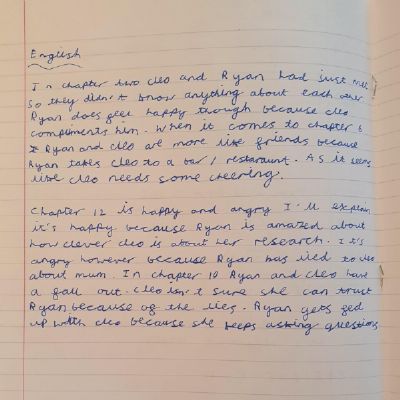 English
In chapter two cleo and Ryan had just met
so they didn't know anything about each other
Ryan does feel happy though because cleo
compliments him. When it comes to chapter 6
Ryan and cleo are more like friends because
Ryan takes cleo to a bar / restaraunt. As it seems
like cleo needs some cheering.
Chapter 12 is happy and angry I'll explain
it's happy because Ryan is amazed about
how clever cleo is about her research. It's
angry however because Ryan has lied to cleo
about mum. In chapter 19 Ryan and cleo have
a fall out. cleo isn't sure she can trust
Ryan because of the lies. Ryan gets fed
up with cleo because she keeps asking questions